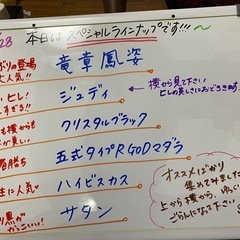 28
本日はスペシャルラインナップです!!!
ぶりの登場
大人気!!
竜章鳳姿
ヒレ!
すぎる!!
ジュディ
横から見て下さい
ヒレの美しさにおどろきます
も横からも
クリスタルブラック
者勝ち
五式タイプR GODマダラ
生に人気♡
ハイビスカス
黒が
かっこいい!
サタン
オススメばかり
集めてみました
上から横から
ごらんになって下さい